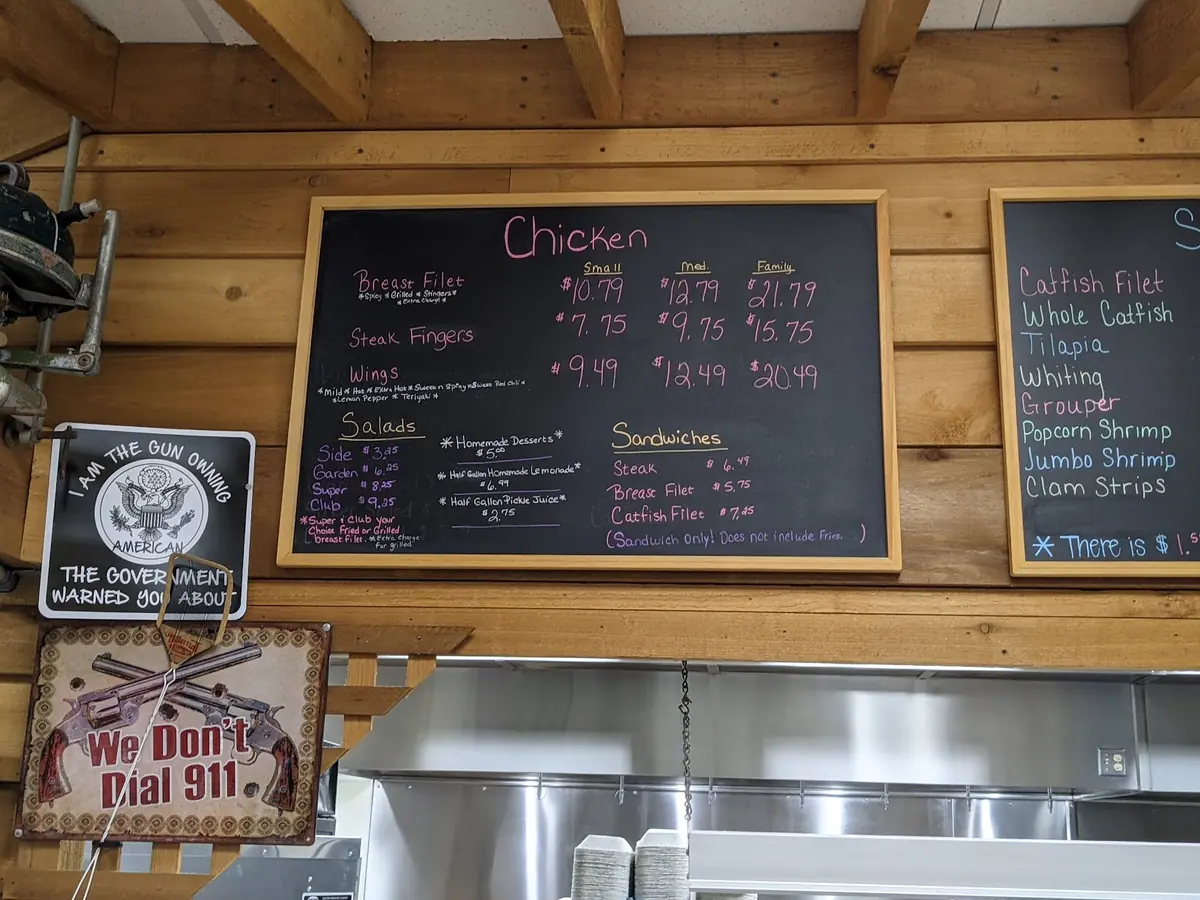 Chicken
Small Med. Family
Breast Filet $10.79 $12.79 $21.79
*Spicy *Grilled *Stingers*
*Extra Charge*
Steak Fingers $7.75 $9.75 $15.75
Wings $9.49 $12.49 $20.49
*Mild * Hot * Extra Hot * Sweet n Spicy * Sweet Red Chili *
*Lemon Pepper * Teriyaki *
Salads
Side $3.25
Garden $6.25
Super $8.25
Club $9.25
*Super & Club your
Choice Fried or Grilled
breast filet. *Extra charge
for grilled
*Homemade Desserts*
$5.00
*Half Gallon Homemade Lemonade*
$6.99
*Half Gallon Pickle Juice*
$2.75
Sandwiches
Steak $6.49
Breast Filet $5.75
Catfish Filet $7.25
(Sandwich Only! Does not include Fries. )
S
Catfish Filet
Whole Catfish
Tilapia
Whiting
Grouper
Popcorn Shrimp
Jumbo Shrimp
Clam Strips
* There is $1.5
I AM THE GUN OWNING
AMERICAN
THE GOVERNMENT
WARNED YOU ABOUT
We Don't
Dial 911